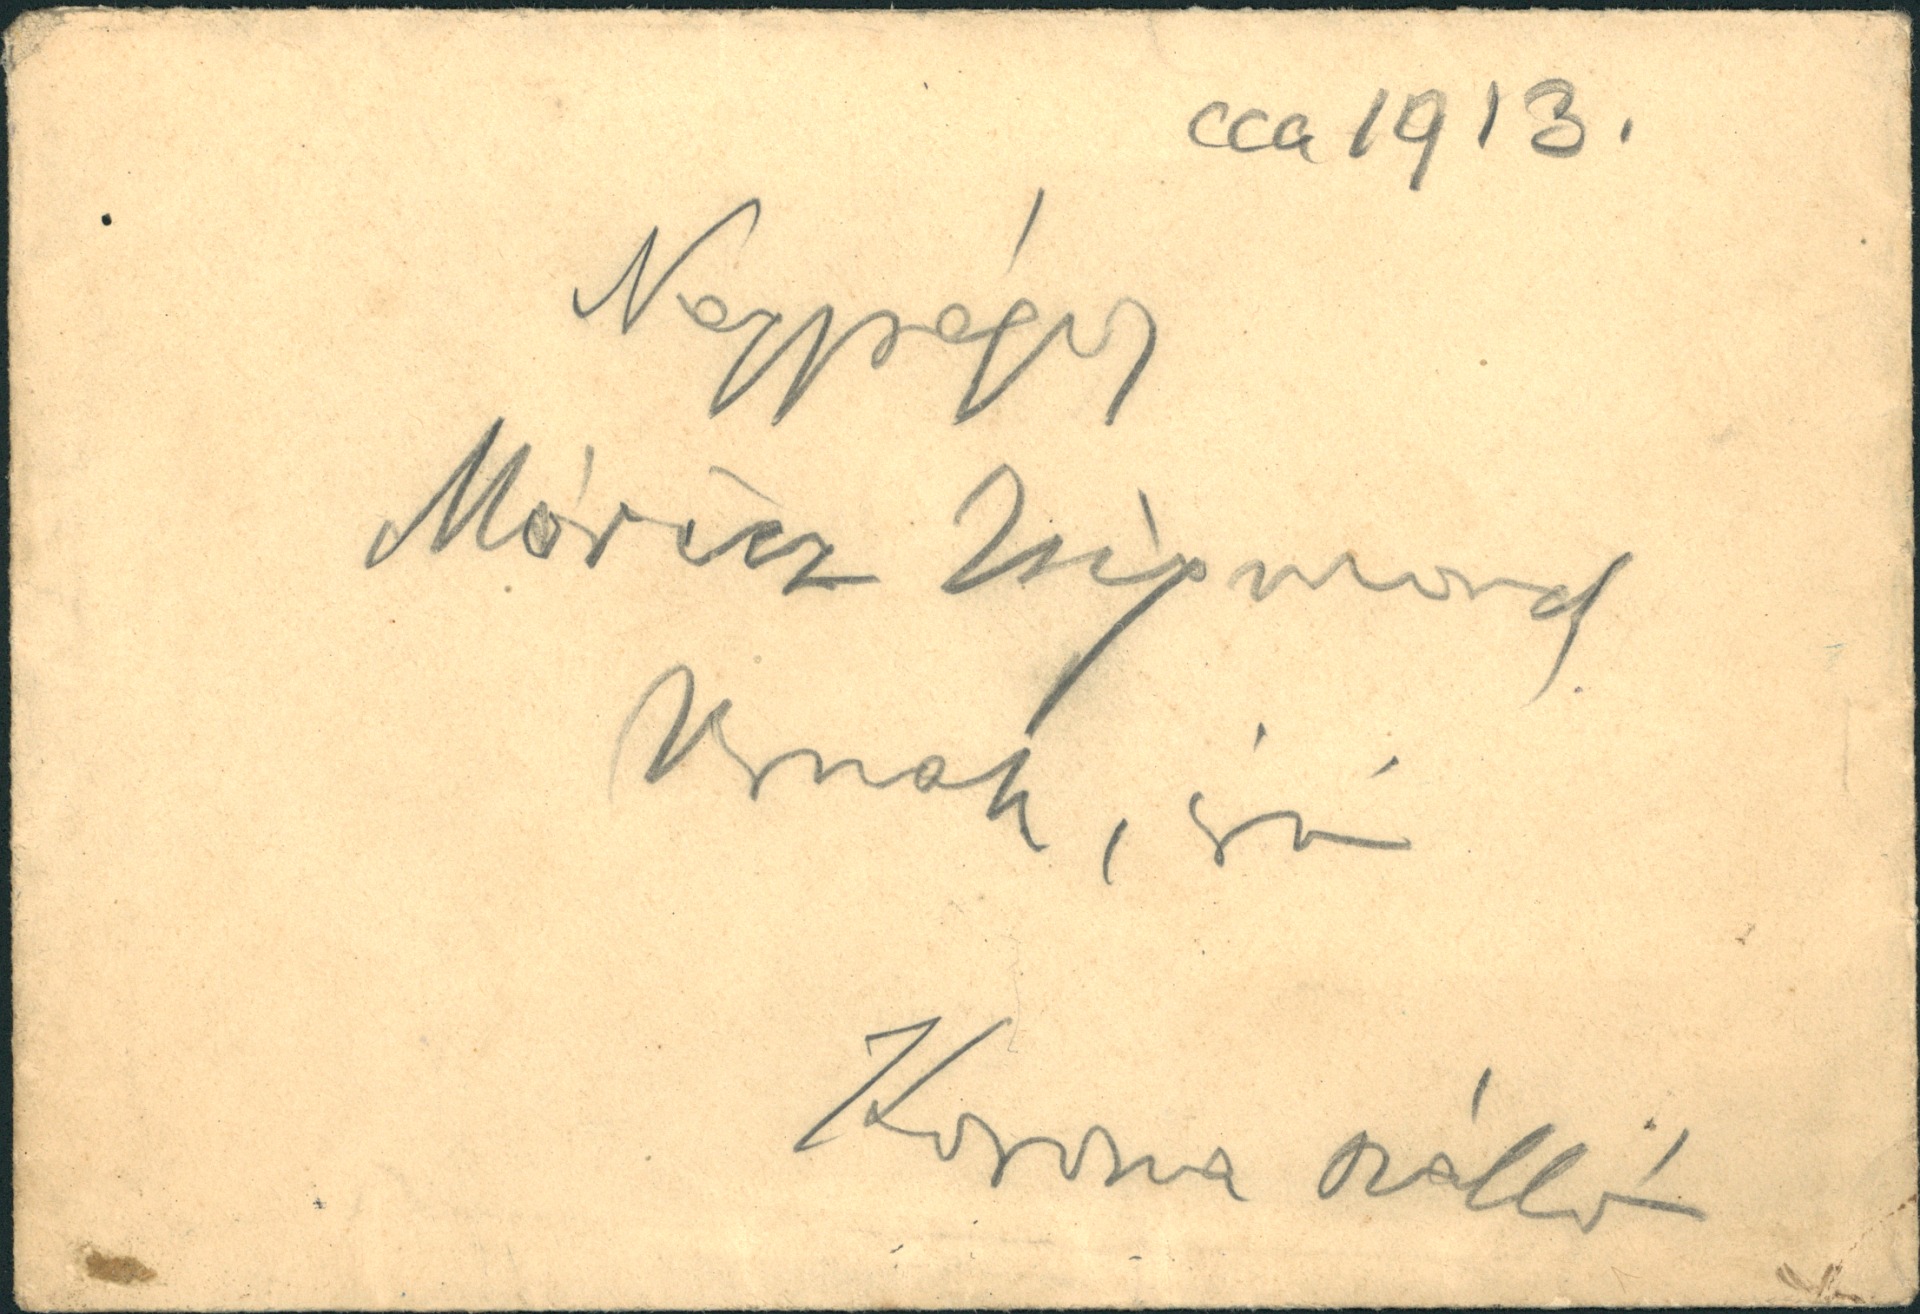 cca 1913.
Nagyságos
Móricz Zsigmond
Urnak, iró
Korona szálló